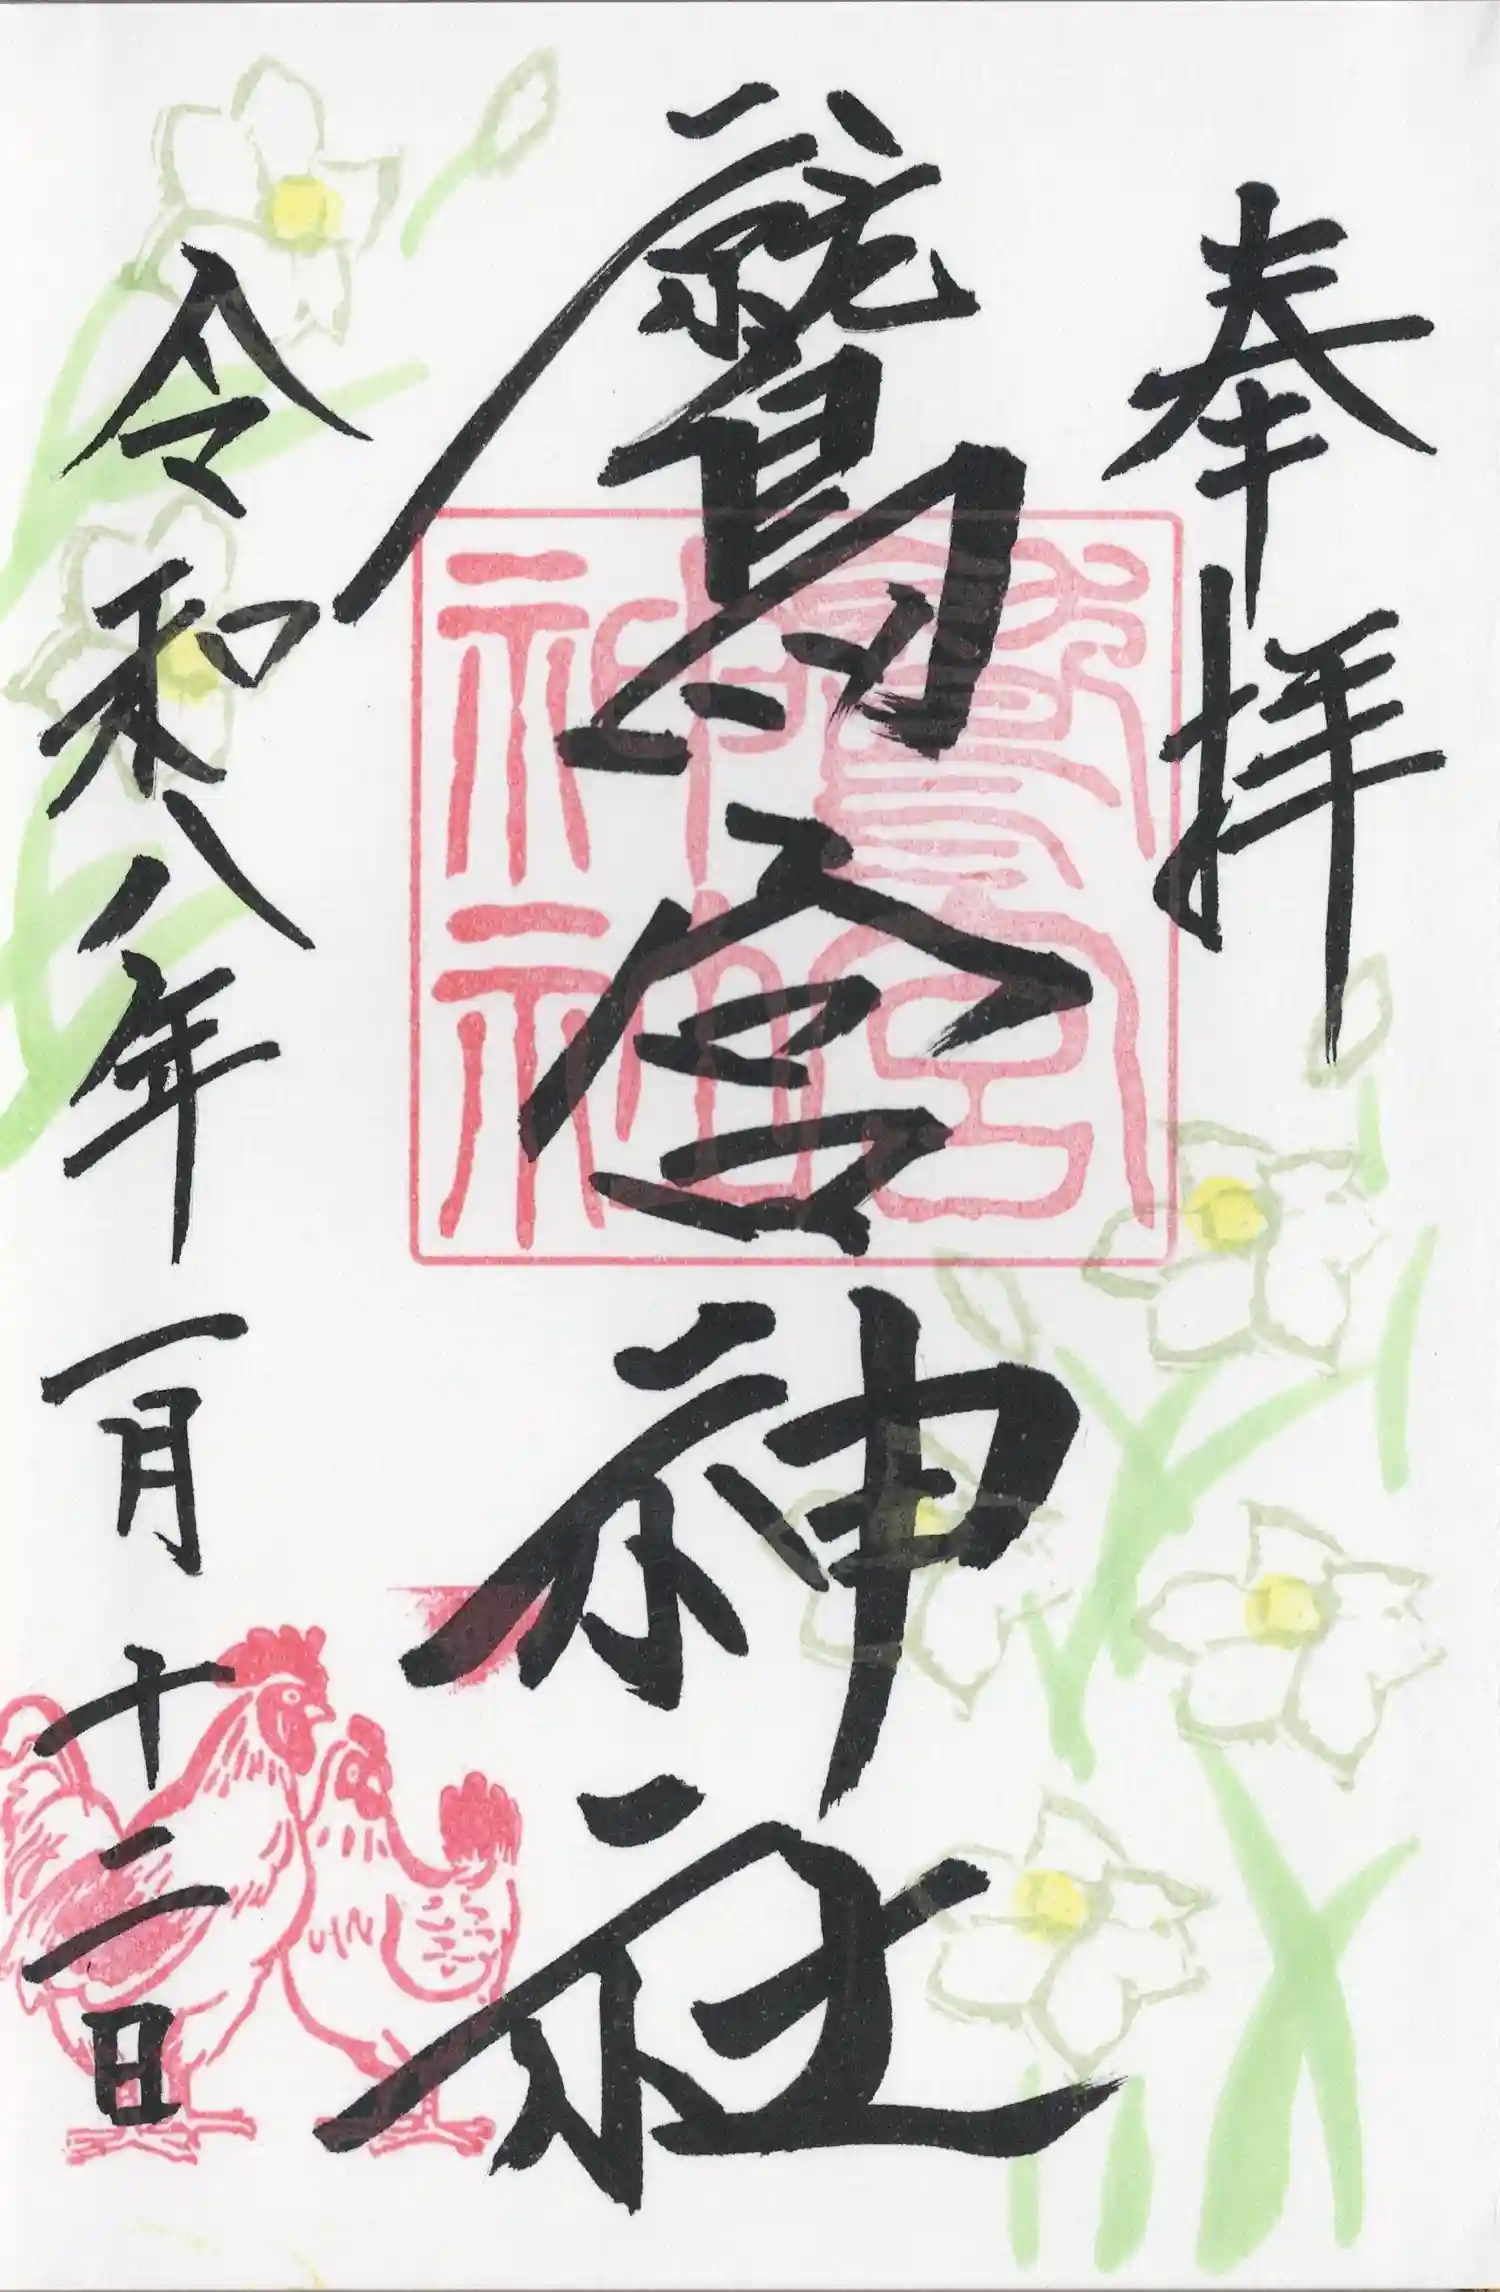 奉拝
鷲宮神社
令和八年一月十二日
鷲宮
神社